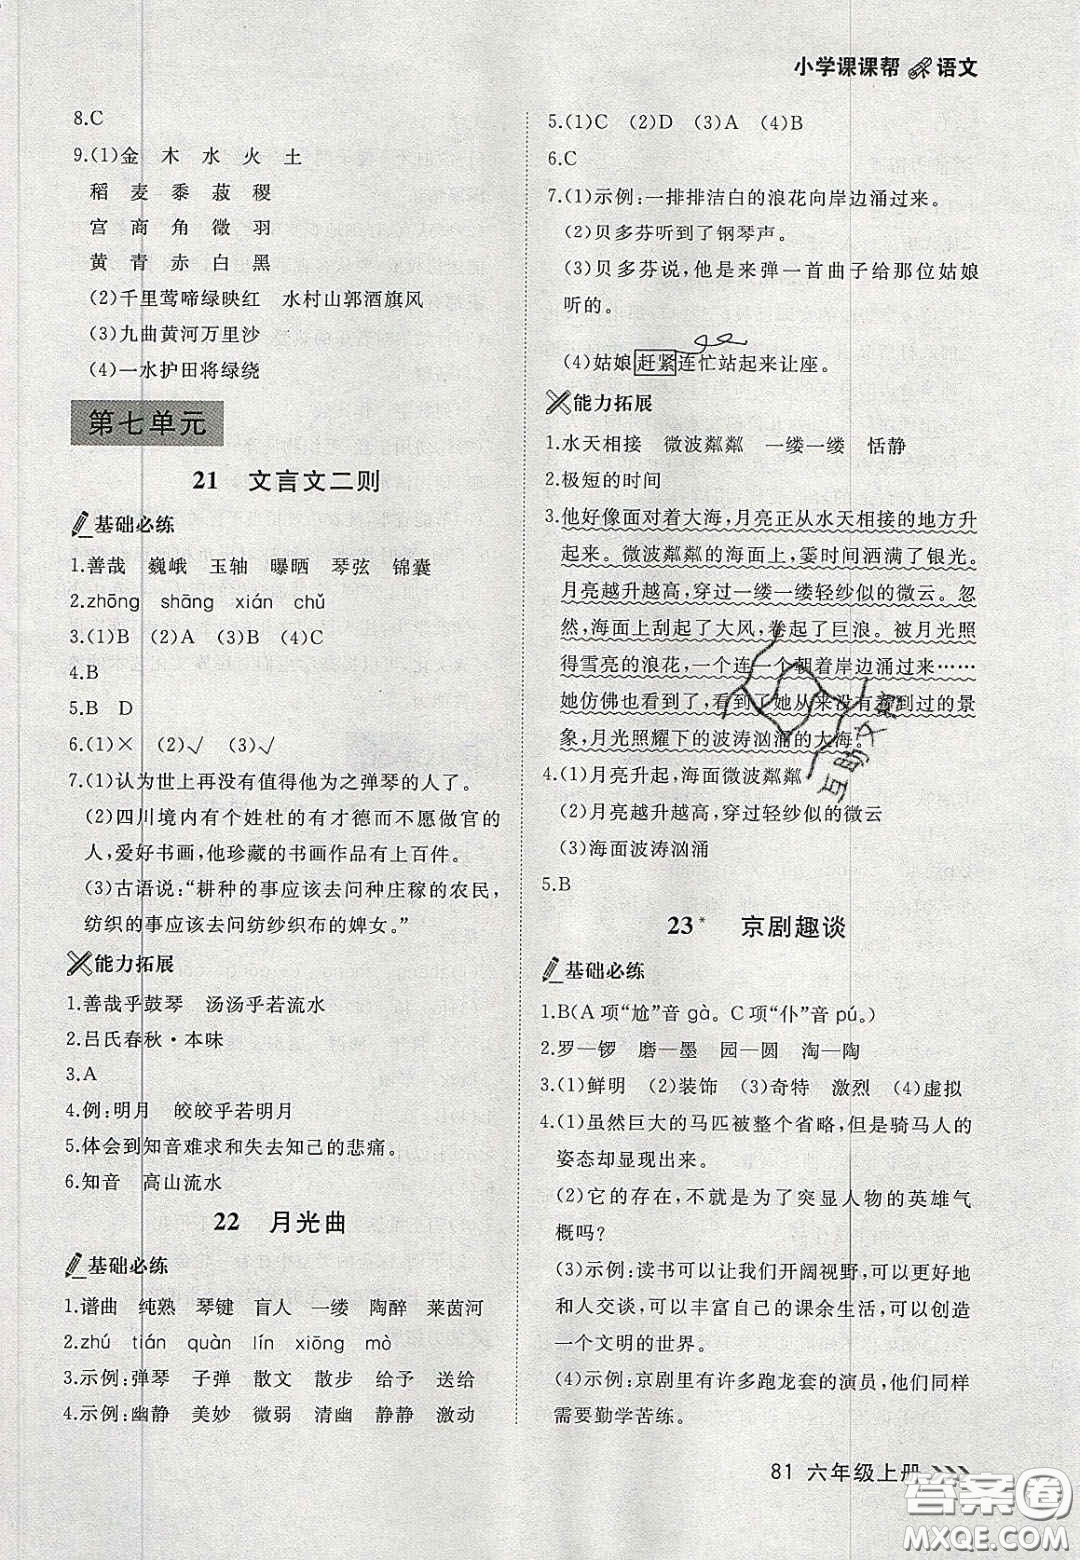 小学课课帮 语文
8.C
9.(1)金 木 水 火 土
稻 麦 黍 菽 稷
宫 商 角 徵 羽
黄 青 赤 白 黑
(2)千里莺啼绿映红 水村山郭酒旗风
(3)九曲黄河万里沙
(4)一水护田将绿绕
第七单元
21 文言文二则
基础必练
1.善哉 巍峨 玉轴 曝晒 琴弦 锦囊
2.zhōng shāng xián chǔ
3.(1)B (2)A (3)B (4)C
4.B
5.B D
6.(1)× (2)√ (3)√
7.(1)认为世上再没有值得他为之弹琴的人了。
(2)四川境内有个姓杜的有才德而不愿做官的
人,爱好书画,他珍藏的书画作品有上百件。
(3)古语说:“耕种的事应该去问种庄稼的农民,
纺织的事应该去问纺纱织布的婢女。”
能力拓展
1.善哉乎鼓琴 汤汤乎若流水
2.吕氏春秋·本味
3.A
4.例:明月 皎皎乎若明月
5.体会到知音难求和失去知己的悲痛。
6.知音 高山流水
22 月光曲
基础必练
1.谱曲 纯熟 琴键 盲人 一缕 陶醉 莱茵河
2.zhú tián quàn lín xiōng mò
3.示例:弹琴 子弹 散文 散步 给予 送给
4.示例:幽静 美妙 微弱 清幽 静静 激动
5.(1)C (2)D (3)A (4)B
6.C
7.(1)示例:一排排洁白的浪花向岸边涌过来。
(2)贝多芬听到了钢琴声。
(3)贝多芬说,他是来弹一首曲子给那位姑娘
听的。
(4)姑娘赶紧连忙站起来让座。
能力拓展
1.水天相接 微波粼粼 一缕一缕 恬静
2.极短的时间
3.他好像面对着大海,月亮正从水天相接的地方升
起来。微波粼粼的海面上,霎时间洒满了银光。
月亮越升越高,穿过一缕一缕轻纱似的微云。忽
然,海面上刮起了大风,卷起了巨浪。被月光照
得雪亮的浪花,一个连一个朝着岸边涌过来……
她仿佛也看到了,看到了她从来没有看到过的景
象,月光照耀下的波涛汹涌的大海。
4.(1)月亮升起,海面微波粼粼
(2)月亮越升越高,穿过轻纱似的微云
(3)海面波涛汹涌
5.B
23* 京剧趣谈
基础必练
1.B(A项“尬”音gà。C项“仆”音pú。)
2.罗—锣 磨—墨 园—圆 淘—陶
3.(1)鲜明 (2)装饰 (3)奇特 激烈 (4)虚拟
4.(1)虽然巨大的马匹被整个省略,但是骑马人的
姿态却显现出来。
(2)它的存在,不就是为了突显人物的英雄气
概吗?
(3)示例:读书可以让我们开阔视野,可以更好地
和人交谈,可以丰富自己的课余生活,可以创造
一个文明的世界。
(4)示例:京剧里有许多跑龙套的演员,他们同样
需要勤学苦练。
81 六年级上册
答案圈
MXQE.COM